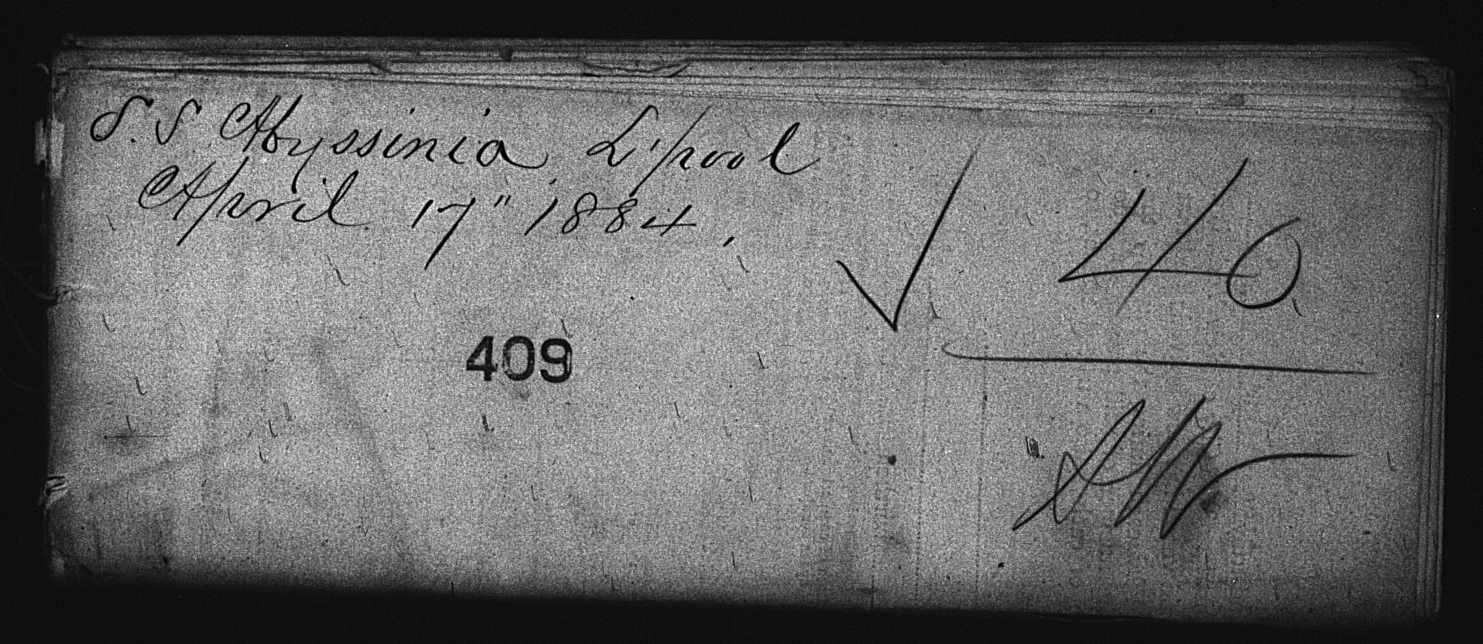 S.S. Abyssinia L'pool
April 17" 1884,
40
409